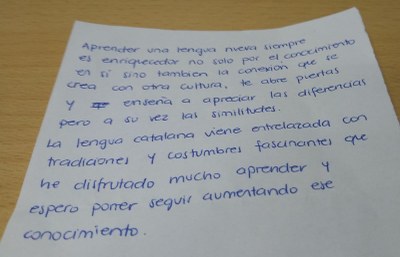 Aprender una lengua nueva siempre
es enriquecedor no solo por el conocimiento
en sí sino tambien la conexión que se
crea con otra cultura, te abre puertas
y enseña a apreciar las diferencias
pero a su vez las similitudes.
La lengua catalana viene entrelazada con
tradiciones y costumbres fascinantes que
he disfrutado mucho aprender y
espero poder seguir aumentando ese
conocimiento.